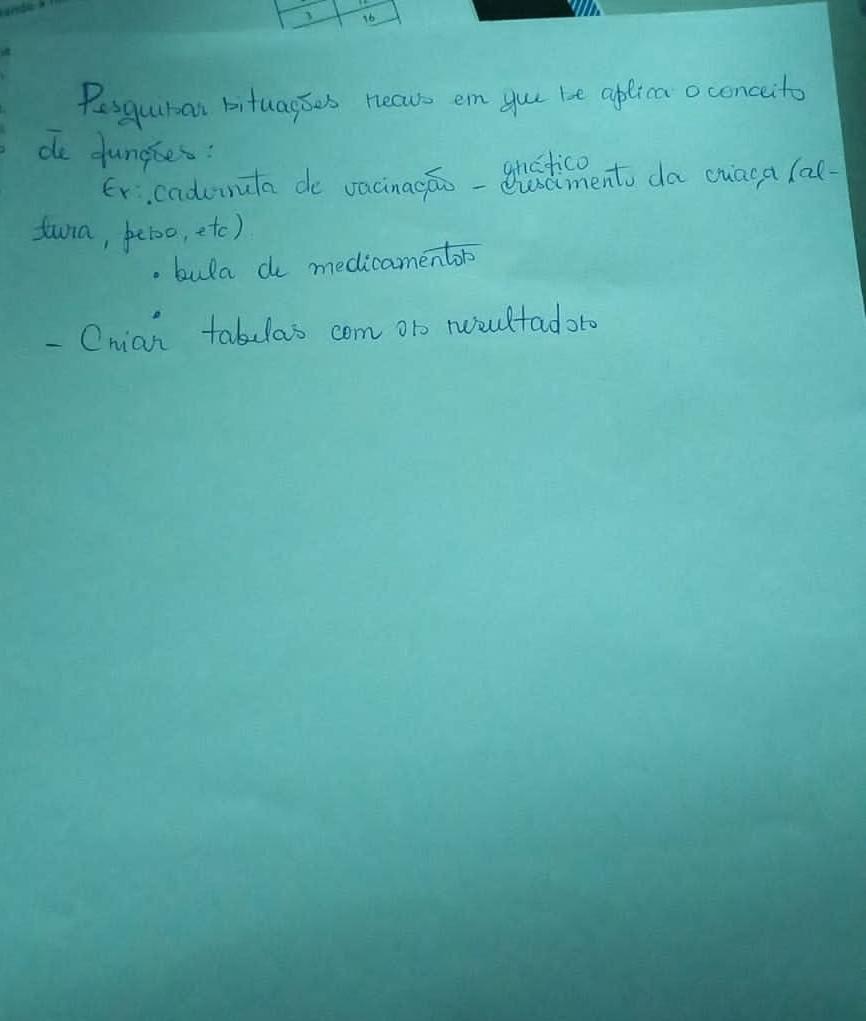 3 16
Pesquisar situações reais em que se aplica o conceito
de funções:
Ex: . caderneta de vacinação - gráfico crescimento da criaça (al-
tura, peso, etc)
. bula de medicamentos
.
- Criar tabelas com os resultados